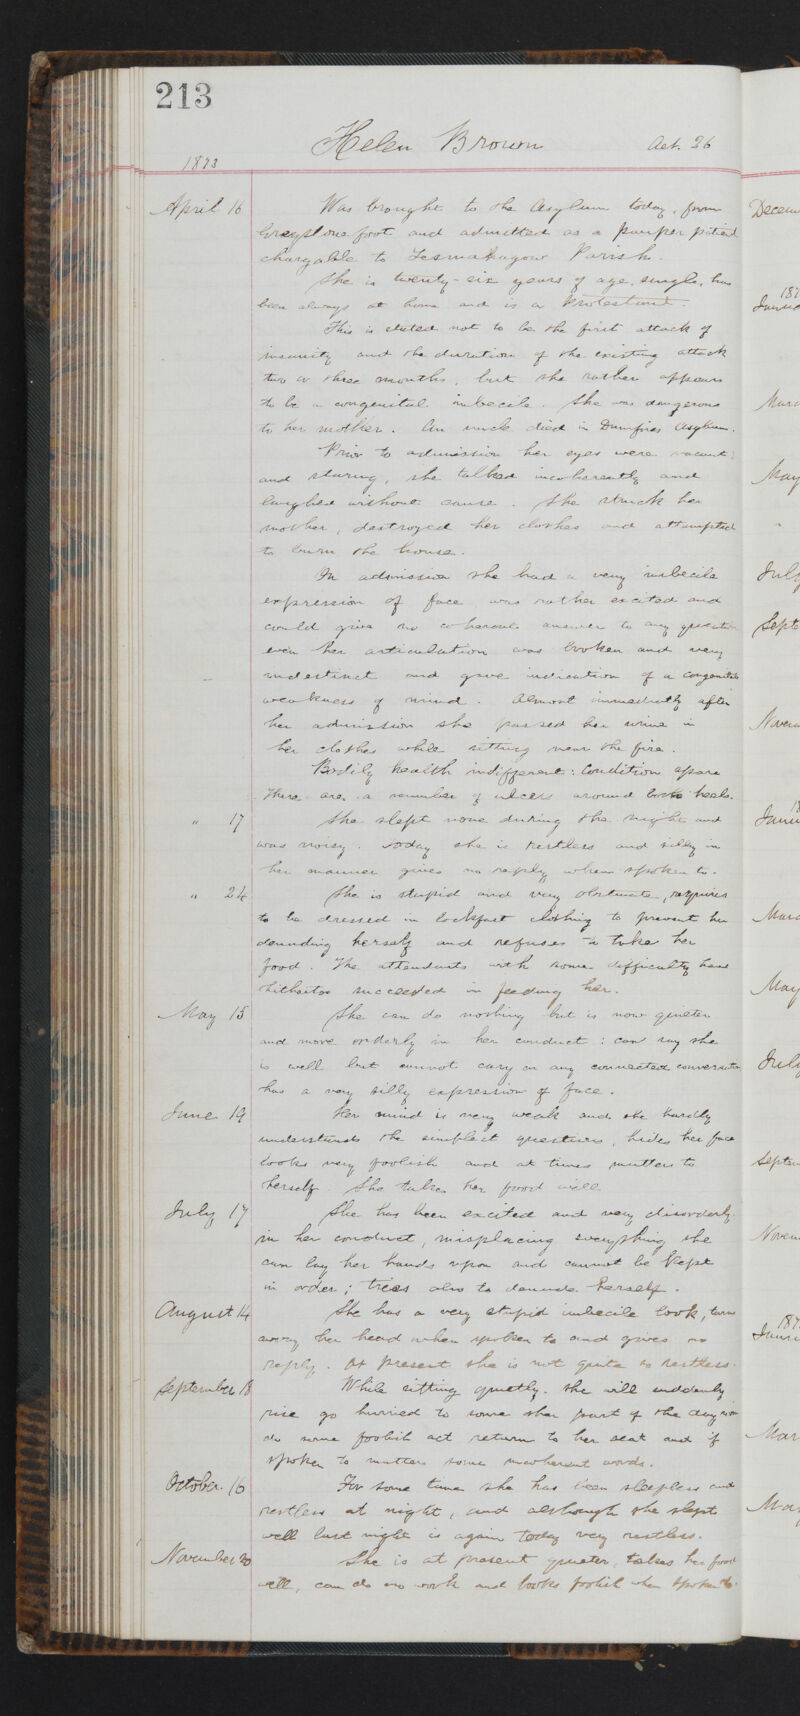 213
Helen Brown Aet. 26
1873
April 16 Was brought to the Asylum today, from
Greystonefoot and admitted as a pauper patient
chargable to Lesmahagow Parish.
She is twenty-six years of age, single, has
been always at home and is a Protestant.
This is stated not to be the first attack of
insanity and the duration of the existing attack
two or three months, but she rather appears
to be a congenital imbecile. She was dangerous
to her mother. An uncle died in Dumfries Asylum.
Prior to admission her eyes were vacant
and staring, she talked incoherently and
laughed without cause. She struck her
mother, destroyed her clothes and attempted
to burn the house.
On admission she had a very imbecile
expression of face was rather excited and
could give no coherent answer to any question
even her articulation was broken and very
indestinct and gave indication of a congenital
weakness of mind. Almost immediatly after
her admission she passed her urine in
her clothes while sitting near the fire.
Bodily health indifferent: Condition spare
There are a number of ulcers around both heels.
" 17 She slept none during the night and
was noisy. Today she is restless and silly in
her manner gives no reply when spoken to.
" 24 She is stupid and very obstinate, requires
to be dressed in lockfast clothing to prevent her
denuding herself and refuses to take her
food. The attendants with some difficulty have
hitherto succeeded in feeding her.
May 15 She can do nothing but is now quieter
and more orderly in her conduct: can say she
is well but cannot cary on any connected conversation
has a very silly expression of face.
June 19 Her mind is very weak and she hardly
understands the simplest questions, hides her face
looks very foolish and at times mutters to
herself. She takes her food well
July 17 She has been excited and very disorderly
in her conduct, misplacing everything she
can lay her hands upon and cannot be kept
in order; tries also to denude herself.
August 14 She has a very stupid imbecile look, turns
away her head when spoken to and gives no
reply. At present she is not quite so restless.
September 18 While sitting quietly, she will suddenly
rise go hurried to some other part of the dayroom
do some foolish act return to her seat and if
spoken to mutters some incoherent words.
October 16 For some time she has been sleepless and
restless at night, and although she slept
well last night is again today very restless.
November 20 She is at present quieter, takes her food
well, can do no work and looks foolish when spoken to.
Decem
187
Janua
Marc
May
July
Septe
Novem
18
Janu
Marc
May
July
Septem
Novem
187
Janua
Mar
Ma